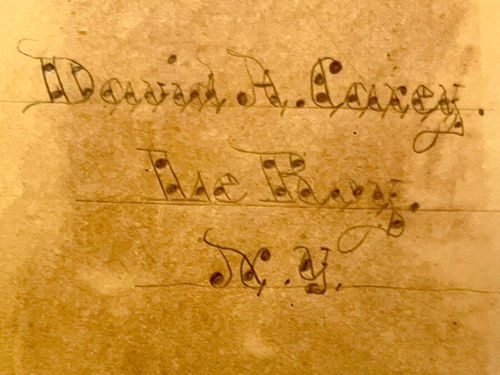 David A. Carey.
Le Roy.
N.Y.